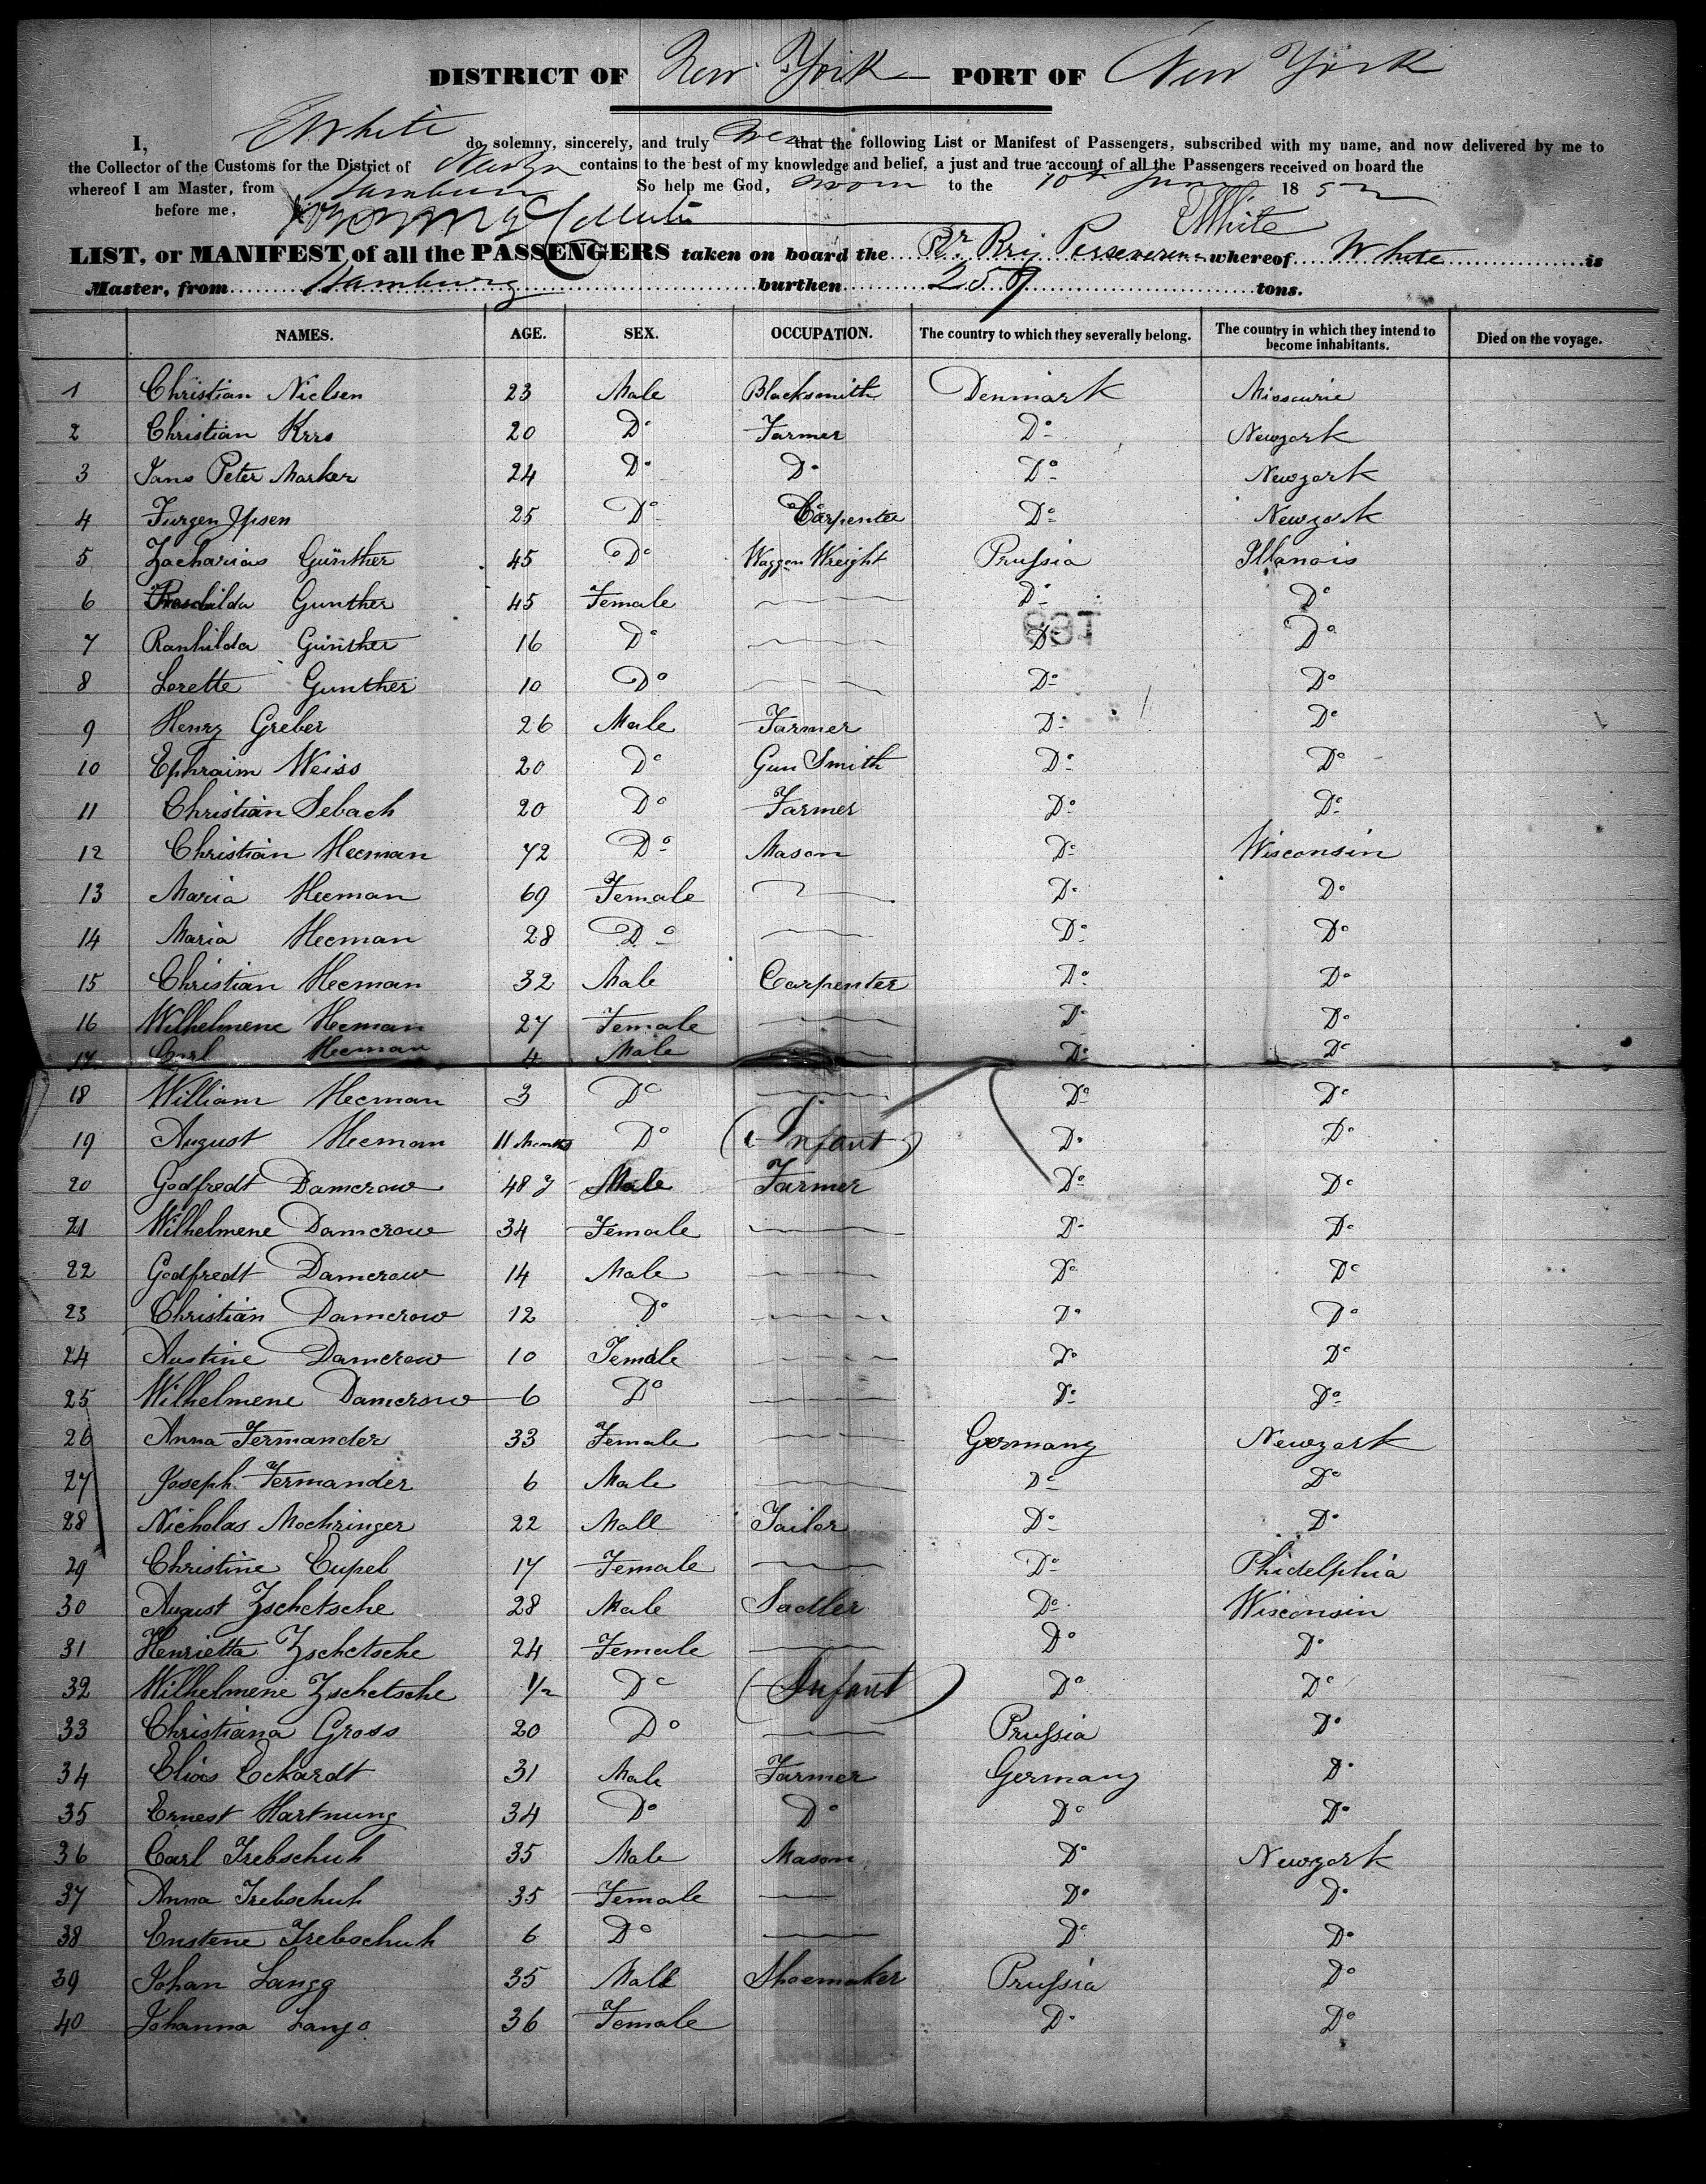 DISTRICT OF New York PORT OF New York
I, E White do solemny, sincerely, and truly that the following List or Manifest of Passengers, subscribed with my name, and now delivered by me to
the Collector of the Customs for the District of contains to the best of my knowledge and belief, a just and true account of all the Passengers received on board the
whereof I am Master, from Hamburg So help me God, sworn to the 10th 1852
before me, EWhite
LIST, or MANIFEST of all the PASSENGERS taken on board the Br Brig whereof White is
Master, from Hamburg burthen 259 tons.
NAMES. AGE. SEX. OCCUPATION. The country to which they severally belong. The country in which they intend to become inhabitants. Died on the voyage.
1 Christian Nielsen 23 Male Blacksmith Denmark Missourie
2 Christian Krrs 20 Do Farmer Do Newyork
3 Jans Peter Marker 24 Do Do Do Newyork
4 Jurgen Ypsen 25 Do Carpenter Do Newyork
5 Zacharias Günther 45 Do Waggon Wreight Prussia Illanois
6 Gunther 45 Female Do Do
7 Ranhilda Günther 16 Do Do Do
8 Lorette Gunther 10 Do Do Do
9 Henry Greber 26 Male Farmer Do Do
10 Ephraim Weiss 20 Do Gun Smith Do Do
11 Christian Sebach 20 Do Farmer Do Do
12 Christian Heeman 72 Do Mason Do Wisconsin
13 Maria Heeman 69 Female Do Do
14 Maria Heeman 28 Do Do Do
15 Christian Heeman 32 Male Carpenter Do Do
16 Wilhelmene Heeman 27 Female Do Do
17 Carl Heeman 4 Male Do Do
18 William Heeman 3 Do Do Do
19 August Heeman 11 Months Do (Infant) Do Do
20 Godfredt Damerow 48 y Male Farmer Do Do
21 Wilhelmene Damerow 34 Female Do Do
22 Godfredt Damerow 14 Male Do Do
23 Christian Damerow 12 Do Do Do
24 Austine Damerow 10 Female Do Do
25 Wilhelmene Damerow 6 Do Do Do
26 Anna Fermander 33 Female Germany Newyork
27 Joseph Fermander 6 Male Do Do
28 Nicholas Mochringer 22 Male Tailor Do Do
29 Christine Eupel 17 Female Do Phidelphia
30 August Zschetsche 28 Male Sadler Do Wisconsin
31 Henrietta Zschetsche 24 Female Do Do
32 Wilhelmene Zschetsche 1/2 Do (Infant) Do Do
33 Christiana Gross 20 Do Prussia Do
34 Elias Eckardt 31 Male Farmer Germany Do
35 Ernest Hartnung 34 Do Do Do Do
36 Carl Trebschuh 35 Male Mason Do Newyork
37 Anna Trebschuh 35 Female Do Do
38 Enstene Trebschuh 6 Do Do Do
39 Johan Lange 35 Male Shoemaker Prussia Do
40 Johanna Lange 36 Female Do Do